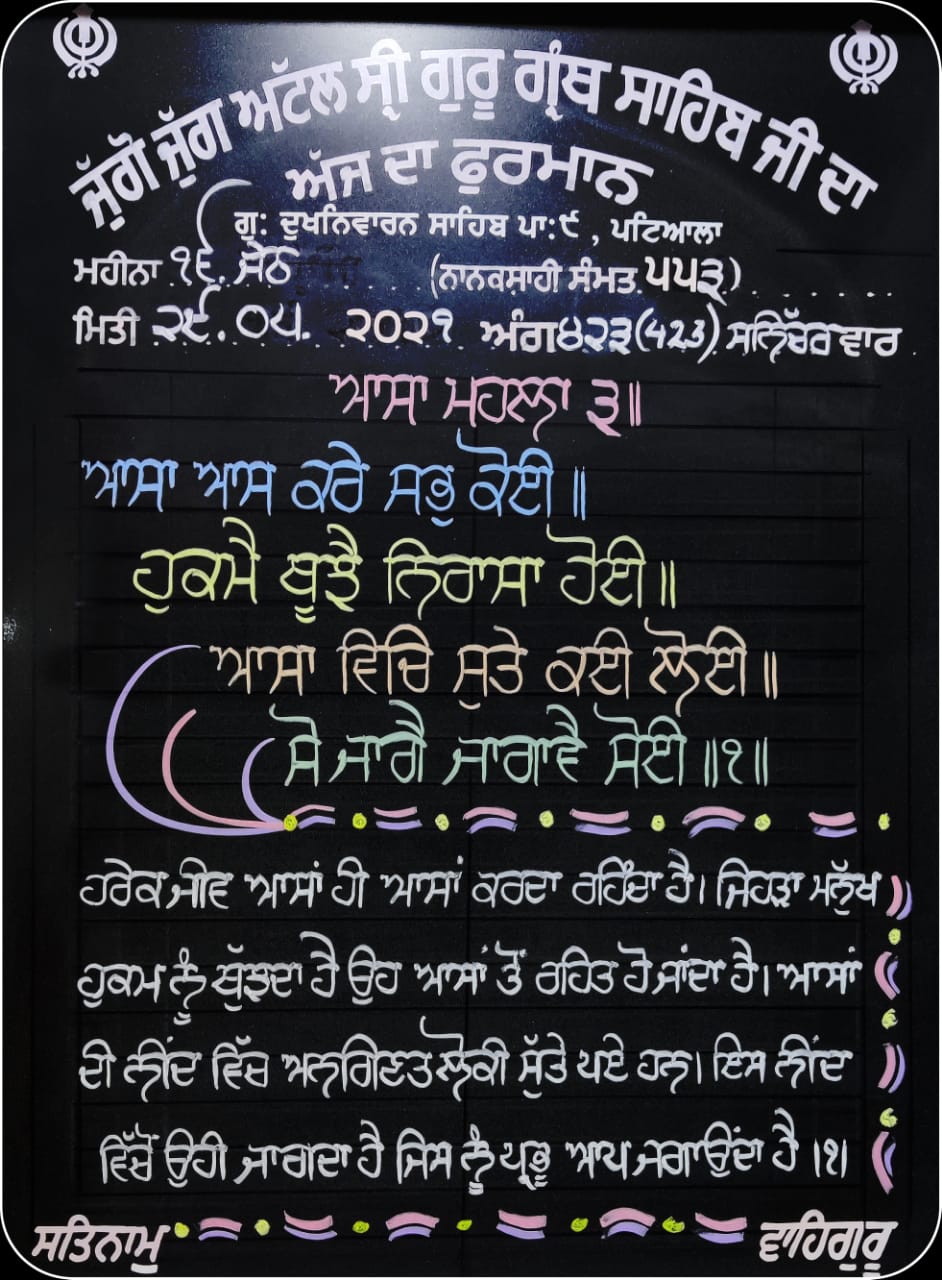 ਜੁੱਗੋ ਜੁੱਗ ਅੱਟਲ ਸ੍ਰੀ ਗੁਰੂ ਗ੍ਰੰਥ ਸਾਹਿਬ ਜੀ ਦਾ
ਅੱਜ ਦਾ ਫੁਰਮਾਨ
ਗੁ: ਦੁਖਨਿਵਾਰਨ ਸਾਹਿਬ ਪਾ:੯ , ਪਟਿਆਲਾ
ਮਹੀਨਾ ੧੬. ਜੇਠ (ਨਾਨਕਸ਼ਾਹੀ ਸੰਮਤ ੫੫੩)
ਮਿਤੀ ੨੯.੦੫. ੨੦੨੧ ਅੰਗ੪੨੩(423) ਸਨਿੱਚਰਵਾਰ
ਆਸਾ ਮਹਲਾ ੩॥
ਆਸਾ ਆਸ ਕਰੇ ਸਭੁ ਕੋਈ ॥
ਹੁਕਮੈ ਬੂਝੈ ਨਿਰਾਸਾ ਹੋਈ ॥
ਆਸਾ ਵਿਚਿ ਸੁਤੇ ਕਈ ਲੋਈ ॥
ਸੋ ਜਾਗੈ ਜਾਗਾਵੈ ਸੋਈ ॥੧॥
ਹਰੇਕ ਜੀਵ ਆਸਾਂ ਹੀ ਆਸਾਂ ਕਰਦਾ ਰਹਿੰਦਾ ਹੈ। ਜਿਹੜਾ ਮਨੁੱਖ
ਹੁਕਮ ਨੂੰ ਬੁੱਝਦਾ ਹੈ ਉਹ ਆਸਾਂ ਤੋਂ ਰਹਿਤ ਹੋ ਜਾਂਦਾ ਹੈ। ਆਸਾਂ
ਦੀ ਨੀਂਦ ਵਿੱਚ ਅਨਗਿਣਤ ਲੋਕੀ ਸੁੱਤੇ ਪਏ ਹਨ। ਇਸ ਨੀਂਦ
ਵਿੱਚੋਂ ਉਹੀ ਜਾਗਦਾ ਹੈ ਜਿਸ ਨੂੰ ਪ੍ਰਭੂ ਆਪ ਜਗਾਉਂਦਾ ਹੈ ।੧।
ਸਤਿਨਾਮੁ ਵਾਹਿਗੁਰੂ